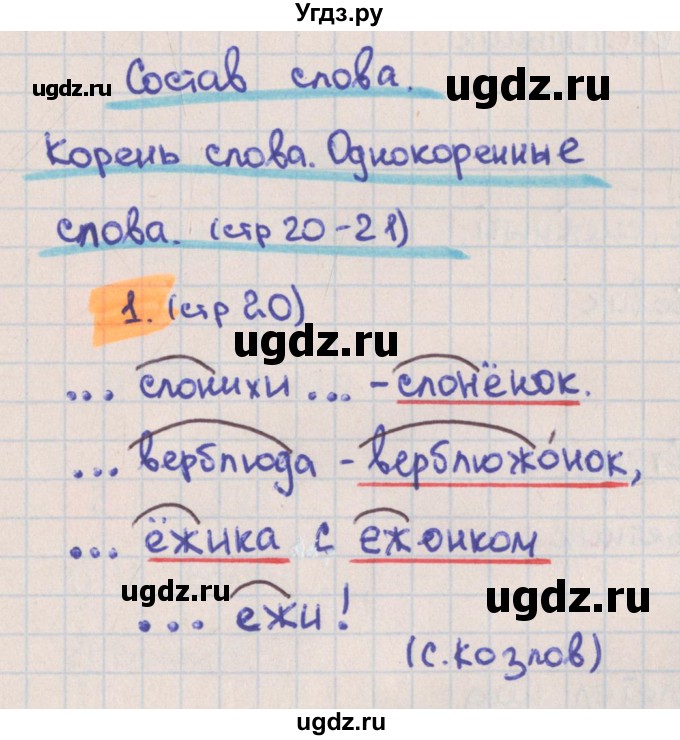 Угдз.ру
Состав слова.
ugdz.ru ugdz.ru
Корень слова. Однокоренные
слова. (стр 20-21)
1. (стр 20)
ugdz.ru
... слонихи ... - слонёнок.
... верблюда - верблюжо́нок,
... ёжика с ежонком
ugdz.ru ugdz.ru
... ежи!
(С. Козлов)
ugdz.ru